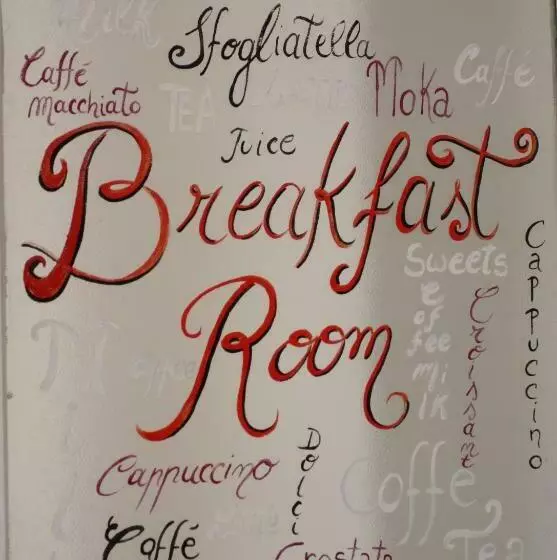 Milk
Sfogliatella
Caffé
macchiato
TEA
Moka
Caffé
Juice
Breakfast
Room
Sweets
Coffee milk
Croissant
Cappuccino
Coffee
Cappuccino
Dolci
Coffee
Caffé
Crostate
Tea